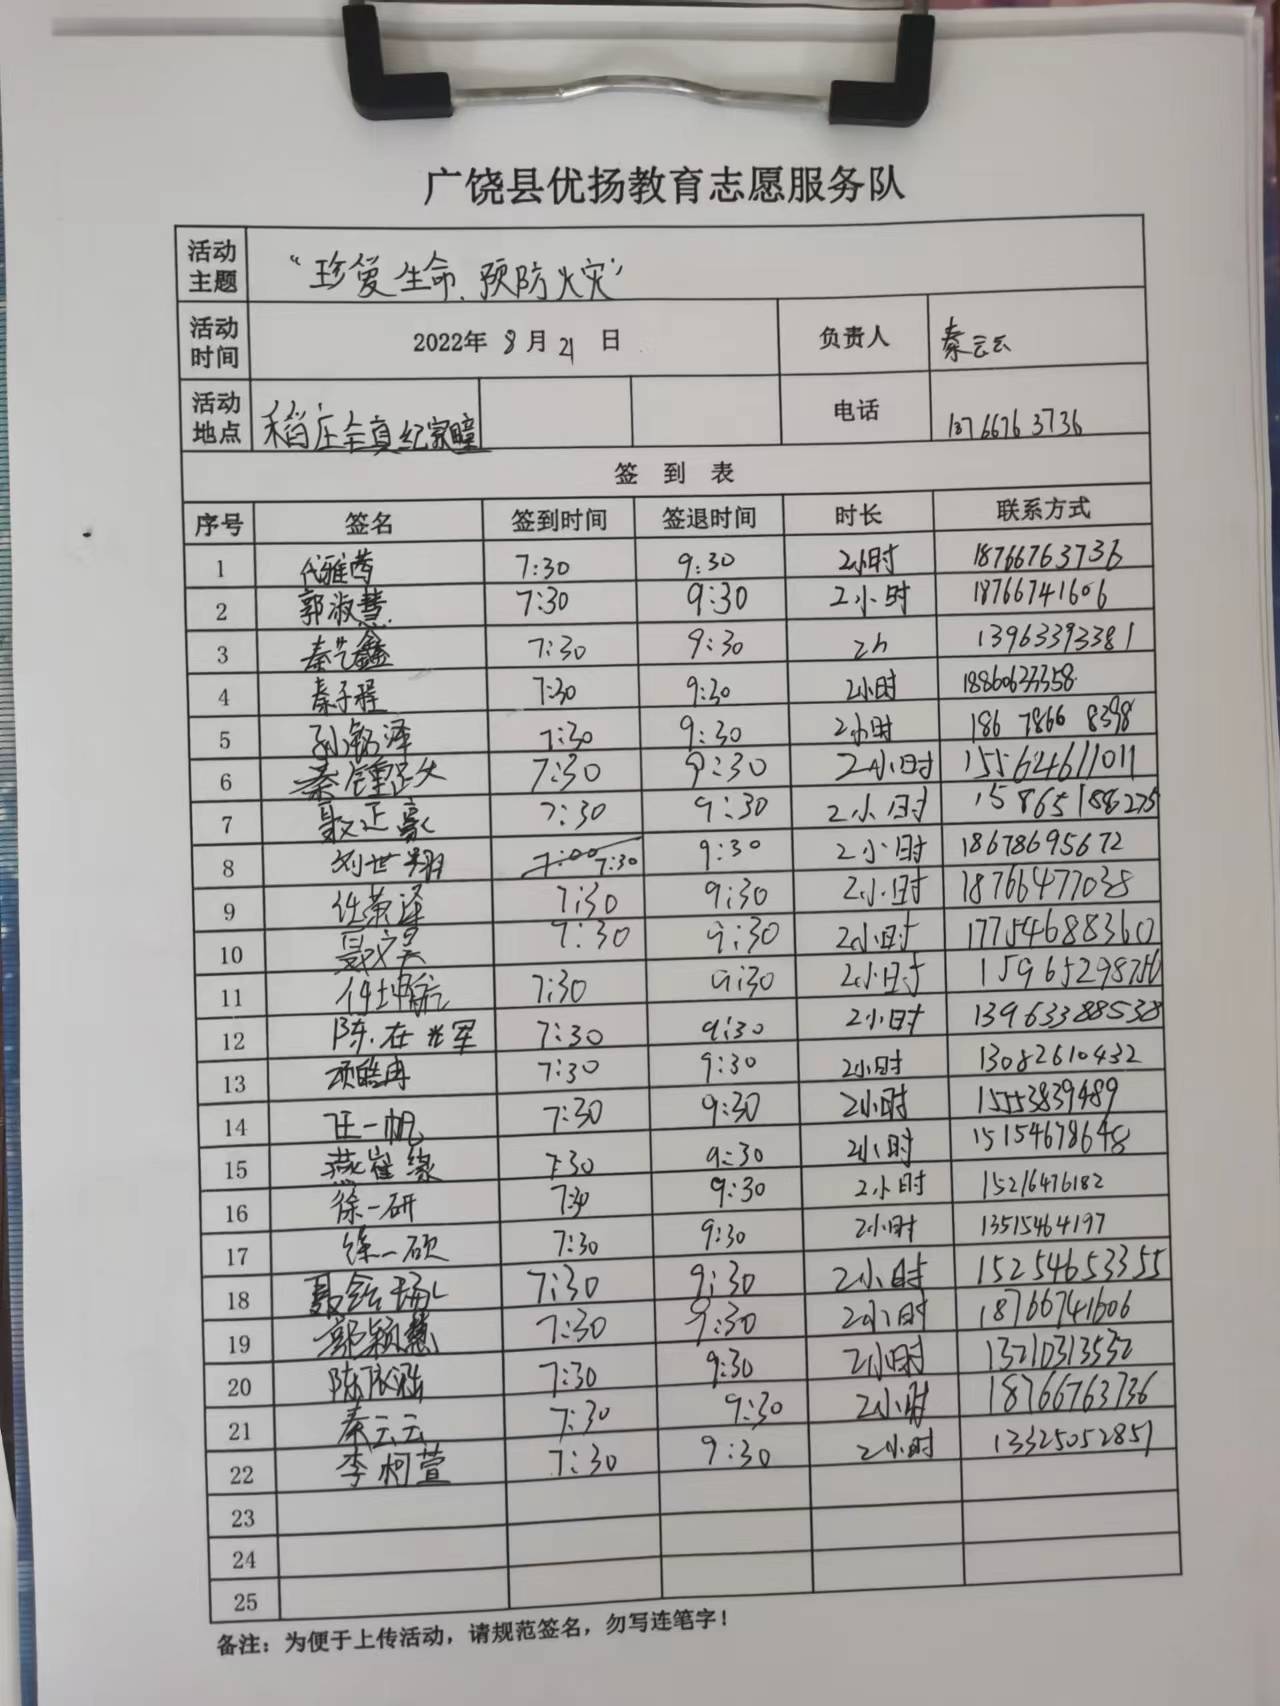 广饶县优扬教育志愿服务队
活动主题 “珍爱生命、预防火灾”
活动时间 2022年 8 月 21 日 负责人 秦云云
活动地点 稻庄全真纪家疃 电话 18766763736
签 到 表
序号 签名 签到时间 签退时间 时长 联系方式
1 代雅茜 7:30 9:30 2小时 18766763736
2 郭淑慧 7:30 9:30 2小时 18766741606
3 秦艺鑫 7:30 9:30 2h 13963393381
4 秦子程 7:30 9:30 2小时 18860633358
5 孙铭泽 7:30 9:30 2小时 186 7866 8398
6 秦 7:30 9:30 2小时 15564611011
7 聂正豪 7:30 9:30 2小时 15865188275
8 刘世翔 7:30 9:30 2小时 18678695672
9 任荣泽 7:30 9:30 2小时 18766477038
10 聂文昊 7:30 9:30 2小时 17754688360
11 航 7:30 9:30 2小时 15965298756
12 陈在 军 7:30 9:30 2小时 13963388538
13 项皓冉 7:30 9:30 2小时 13082610432
14 王一帆 7:30 9:30 2小时 15553839489
15 燕崔缘 7:30 9:30 2小时 15154678648
16 徐一研 7:30 9:30 2小时 15216476182
17 徐一硕 7:30 9:30 2小时 13515464197
18 聂 7:30 9:30 2小时 15254653355
19 郭颖慧 7:30 9:30 2小时 18766741606
20 陈依涵 7:30 9:30 2小时 13210313532
21 秦云云 7:30 9:30 2小时 18766763736
22 李柯萱 7:30 9:30 2小时 13325052851
23
24
25
备注：为便于上传活动，请规范签名，勿写连笔字！